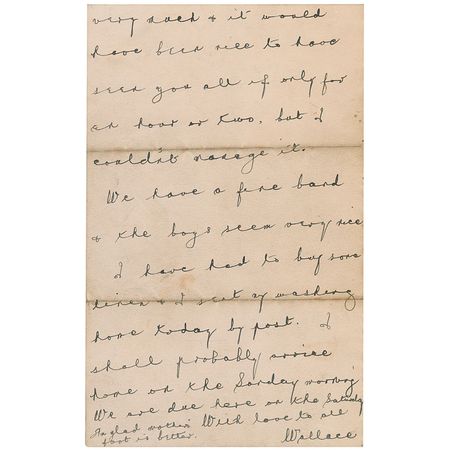 very much & it would
have been nice to have
seen you all if only for
an hour or two, but I
couldn't manage it.
We have a fine band
& the boys seem very nice
I have had to buy some
linen & I sent my washing
home today by post. I
shall probably arrive
home on the Sunday morning
We are due here on the Saturday
Am glad mother's
foot is better.
With love to all
Wallace